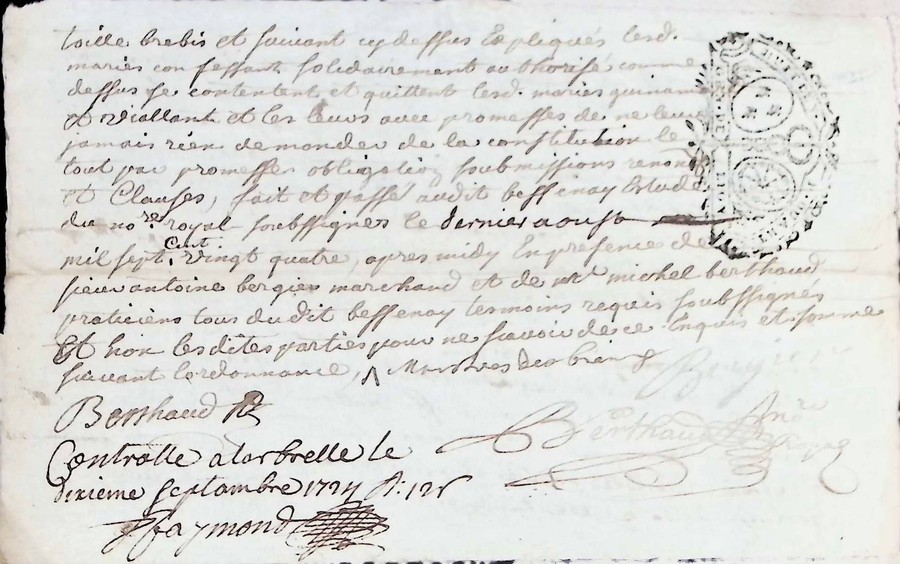 taille brebis et suivant cy dessus Expliqués lesd.
mariés confessant solidairement authorisé comme
dessus se contentent et quittent lesd. mariés
et viallant et les leurs avec promesses de ne leur
jamais rien demander de la constitution le
tout par promesses obligation soubmissions renon
et Clauses, fait et passé audit bessenay Estude
du no.re royal soubssignés le dernier aoust
mil sept Cent vingt quatre, apres midy En presence de
sieur antoine bergier marchand et de mr. michel berthaud
praticiens tous dudit bessenay tesmoins requis soubssignés
Et non lesdites parties pour ne savoir de ce Enquis et sommé
suivant l'ordonnance,
Berthaud
Berthaud
Controlle a larbrelle le
dixieme septambre 1724
faymond